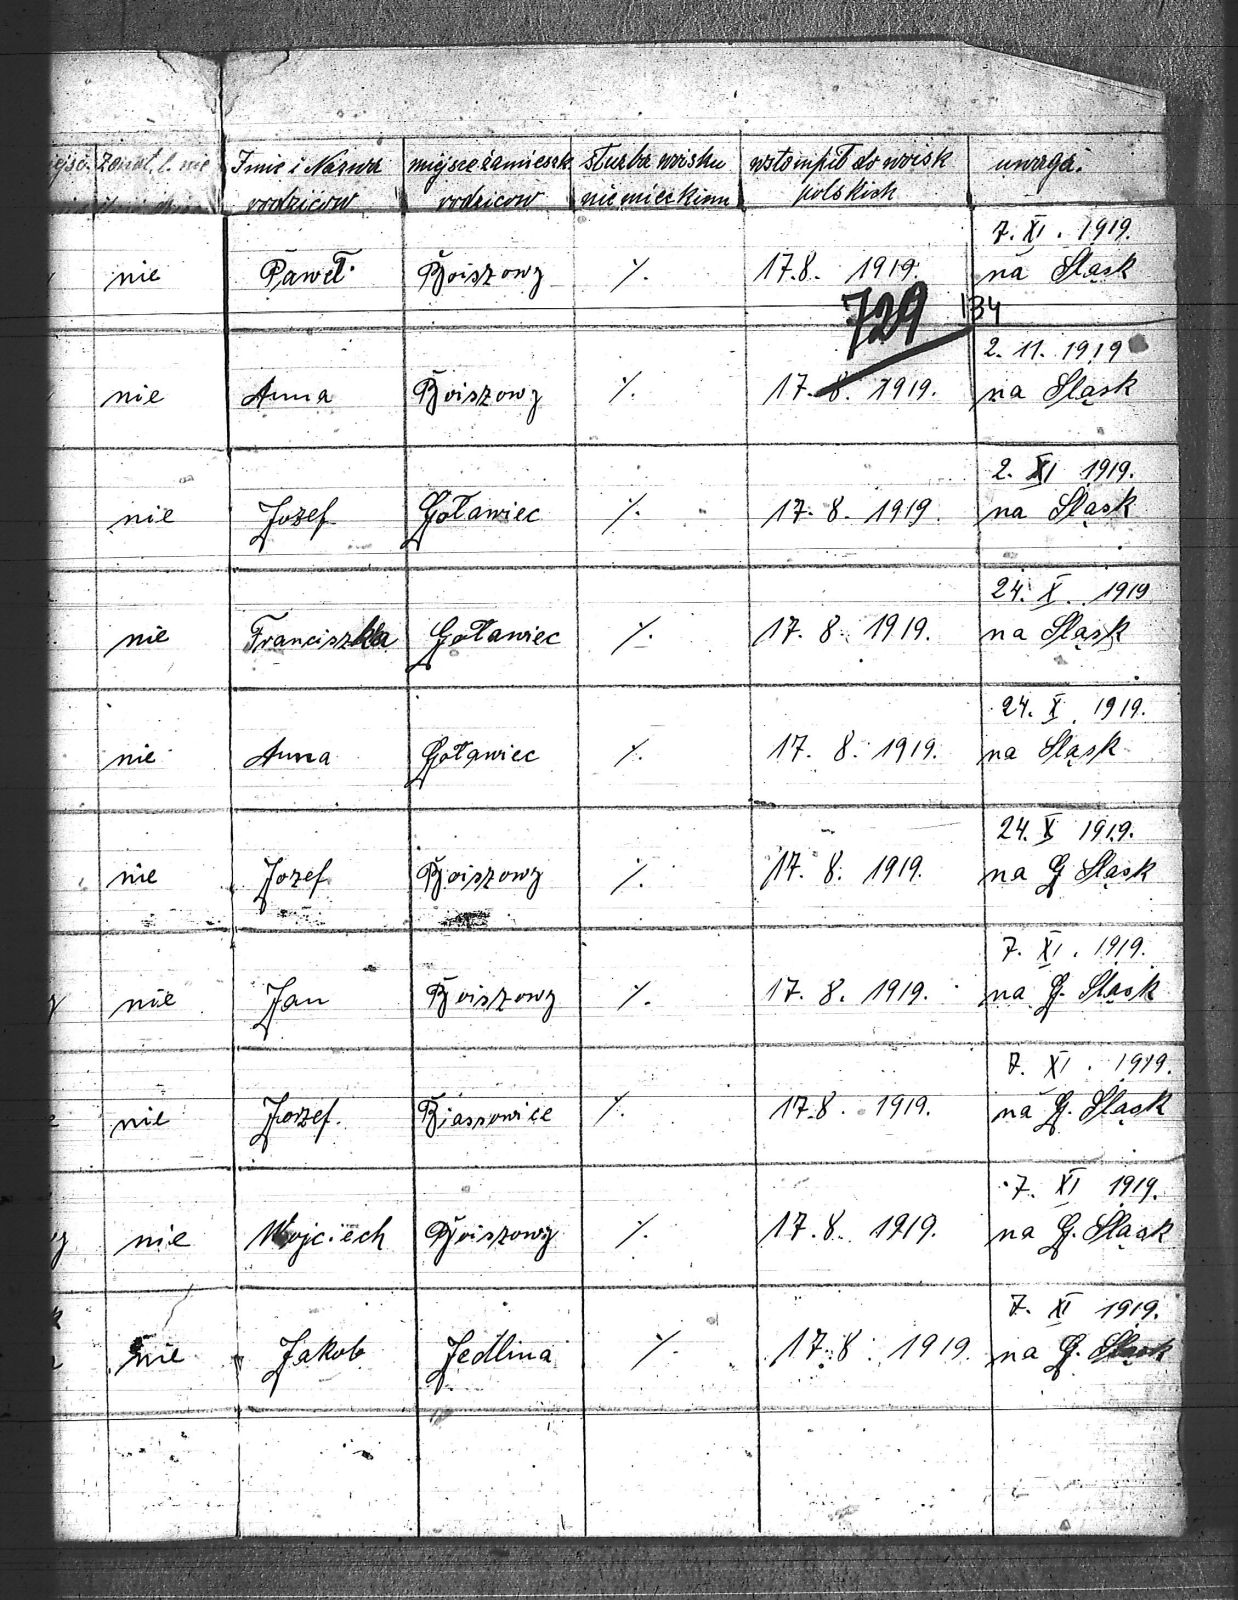 żonat. l. nie Imie i Nazwa miejsce zamieszk służba woisku wstompił do woisk uwaga.
rodziców rodziców niemieckim polskich
7. XI. 1919.
nie Paweł Boiszowy ./. 17.8. 1919. na Śląsk
729 134
2. 11. 1919
nie Anna Boiszowy ./. 17.8. 1919. na Śląsk
2. XI 1919.
nie Jozef Goławiec ./. 17.8. 1919. na Śląsk
24. X. 1919
nie Franciszka Goławiec ./. 17. 8. 1919. na Śląsk
24. X. 1919.
nie Anna Goławiec ./. 17. 8. 1919. na Śląsk
24. X 1919.
nie Jozef Boiszowy ./. 17. 8. 1919. na G Śląsk
7. XI. 1919.
nie Jan Boiszowy ./. 17. 8. 1919. na G. Śląsk
7. XI. 1919.
nie Jozef. Biassowice ./. 17.8. 1919. na G. Śląsk
7. XI 1919.
nie Wojciech Boiszowy ./. 17.8. 1919. na G. Śląsk
7. XI 1919.
nie Jakob Jedlina ./. 17.8. 1919. na G. Śląsk